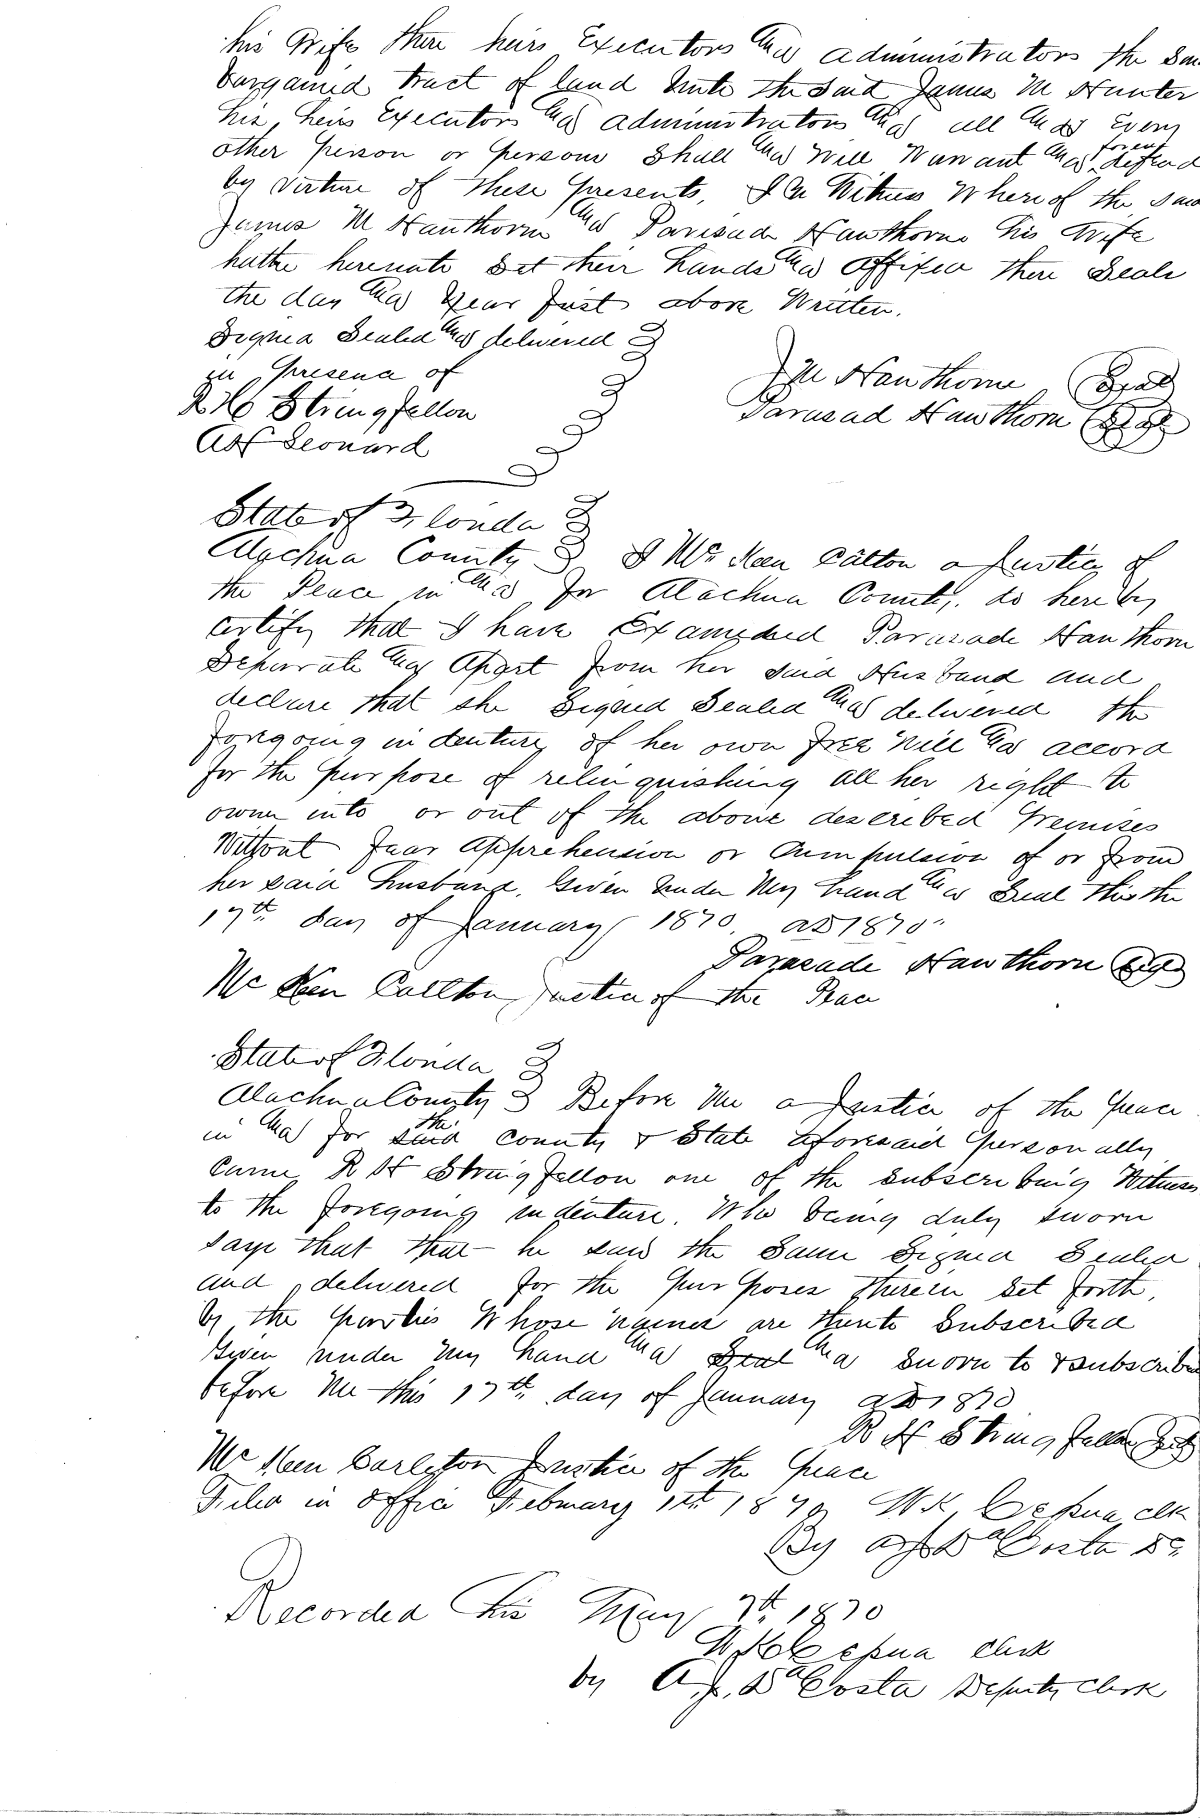 his Wife there heirs Executors And administrators the
bargained tract of land Unto the Said James M Hunter
his heirs Executors And administrators And all And Every
other person or persons Shall And Will Warrant And forever defend
by virture of these presents, In Witness Whereof the said
James M Hawthorn And Parisade Hawthorne his Wife
hathe hereunto Set their hands And Affixed there Seals
the day And Year Just above Written.
Signed Sealed And delivered
in presence of
R H Stringfellon
Leonard
J M Hawthorne Seal
Parasad Hawthorn Seal
State of Florida
Alachua County I Mc Keen Calton a Justice of
the Peace in And for Alachua County, do hereby
certify that I have Examened Parasade Hawthorn
Seperate And Apart from her said Husband and
declare that she Signed Sealed And delivered the
forgoing indenture of her own free Will And accord
for the purpose of relinquishing all her right to
owen into or out of the above described Premises
Without fear Apprehension or Cumpulsion of or from
her said husband. Given Under My hand And Seal this the
17th day of January 1870. AD 1870
Parasade Hawthorn Seal
Mc Keen Carlton Justice of the Peace
State of Florida
Alachua County Before Me a Justice of the Peace
in And for the said County & State aforesaid personally
Came R H Stringfellon one of the Subscribing Witness
to the foregoing indenture. Who being duly sworn
says that that he saw the Same Signed Sealed
and delivered for the purposes therein Set forth,
by the parties Whose names are thereto Subscribed
Given under My hand And Seal And Sworn to & subscribed
before Me this 17th day of January AD 1870
R H Stringfellon Seal
Mc Keen Carleton Justice of the Peace
Filed in office February 1st 1870 W K Cessna clk
By A J Da Costa DC
Recorded this May 7th 1870
W K Cessna Clerk
by A. J. Da Costa Deputy Clerk